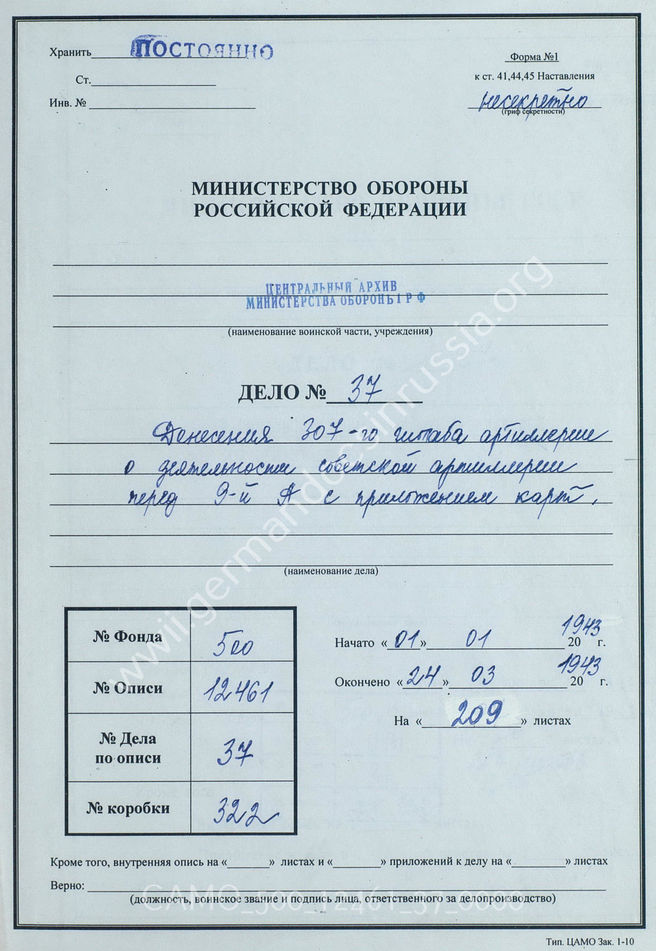 Хранить ПОСТОЯННО
Форма №1
Ст.
к ст. 41,44,45 Наставления
Инв. №
несекретно
(гриф секретности)
МИНИСТЕРСТВО ОБОРОНЫ
РОССИЙСКОЙ ФЕДЕРАЦИИ
ЦЕНТРАЛЬНЫЙ АРХИВ
МИНИСТЕРСТВА ОБОРОНЫ РФ
(наименование воинской части, учреждения)
ДЕЛО № 37
Донесения 307-го штаба артиллерии
о деятельности советской артиллерии
перед 9-й А с приложением карт.
(наименование дела)
№ Фонда 500
№ Описи 12461
№ Дела
по описи 37
№ коробки 322
Начато «01» 01 1943 20 г.
Окончено «24» 03 1943 20 г.
На «209» листах
Кроме того, внутренняя опись на « » листах и « » приложений к делу на « » листах
Верно:
(должность, воинское звание и подпись лица, ответственного за делопроизводство)
Тип. ЦАМО Зак. 1-10
www.germandocsinrussia.org
CAMO_500_12461_37_0000